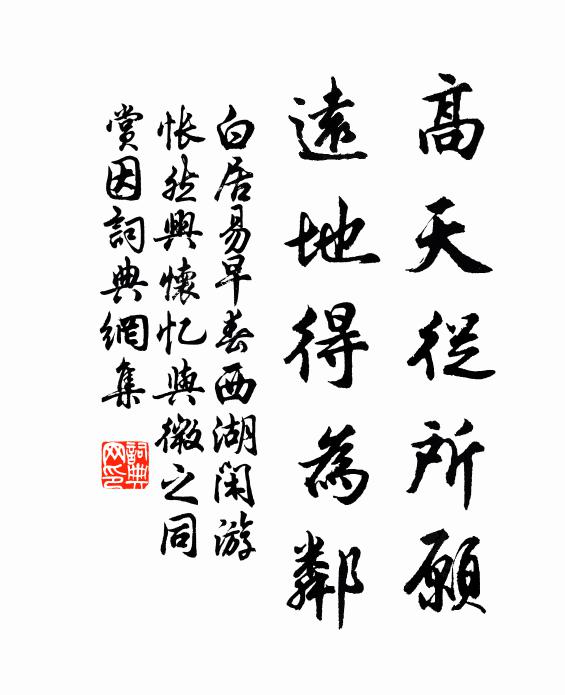 高天從所願
遠地得為鄰
白居易早春西湖闲游
怅然興懷忆與微之同
賞因詞典網集
詞典網印